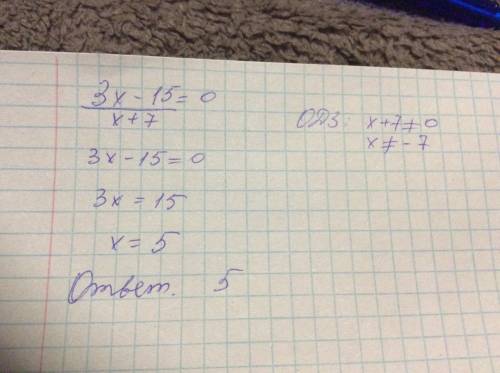 3x - 15 = 0
x + 7
3x - 15 = 0
3x = 15
x = 5
Ответ. 5
ОДЗ: x + 7 ≠ 0
x ≠ - 7